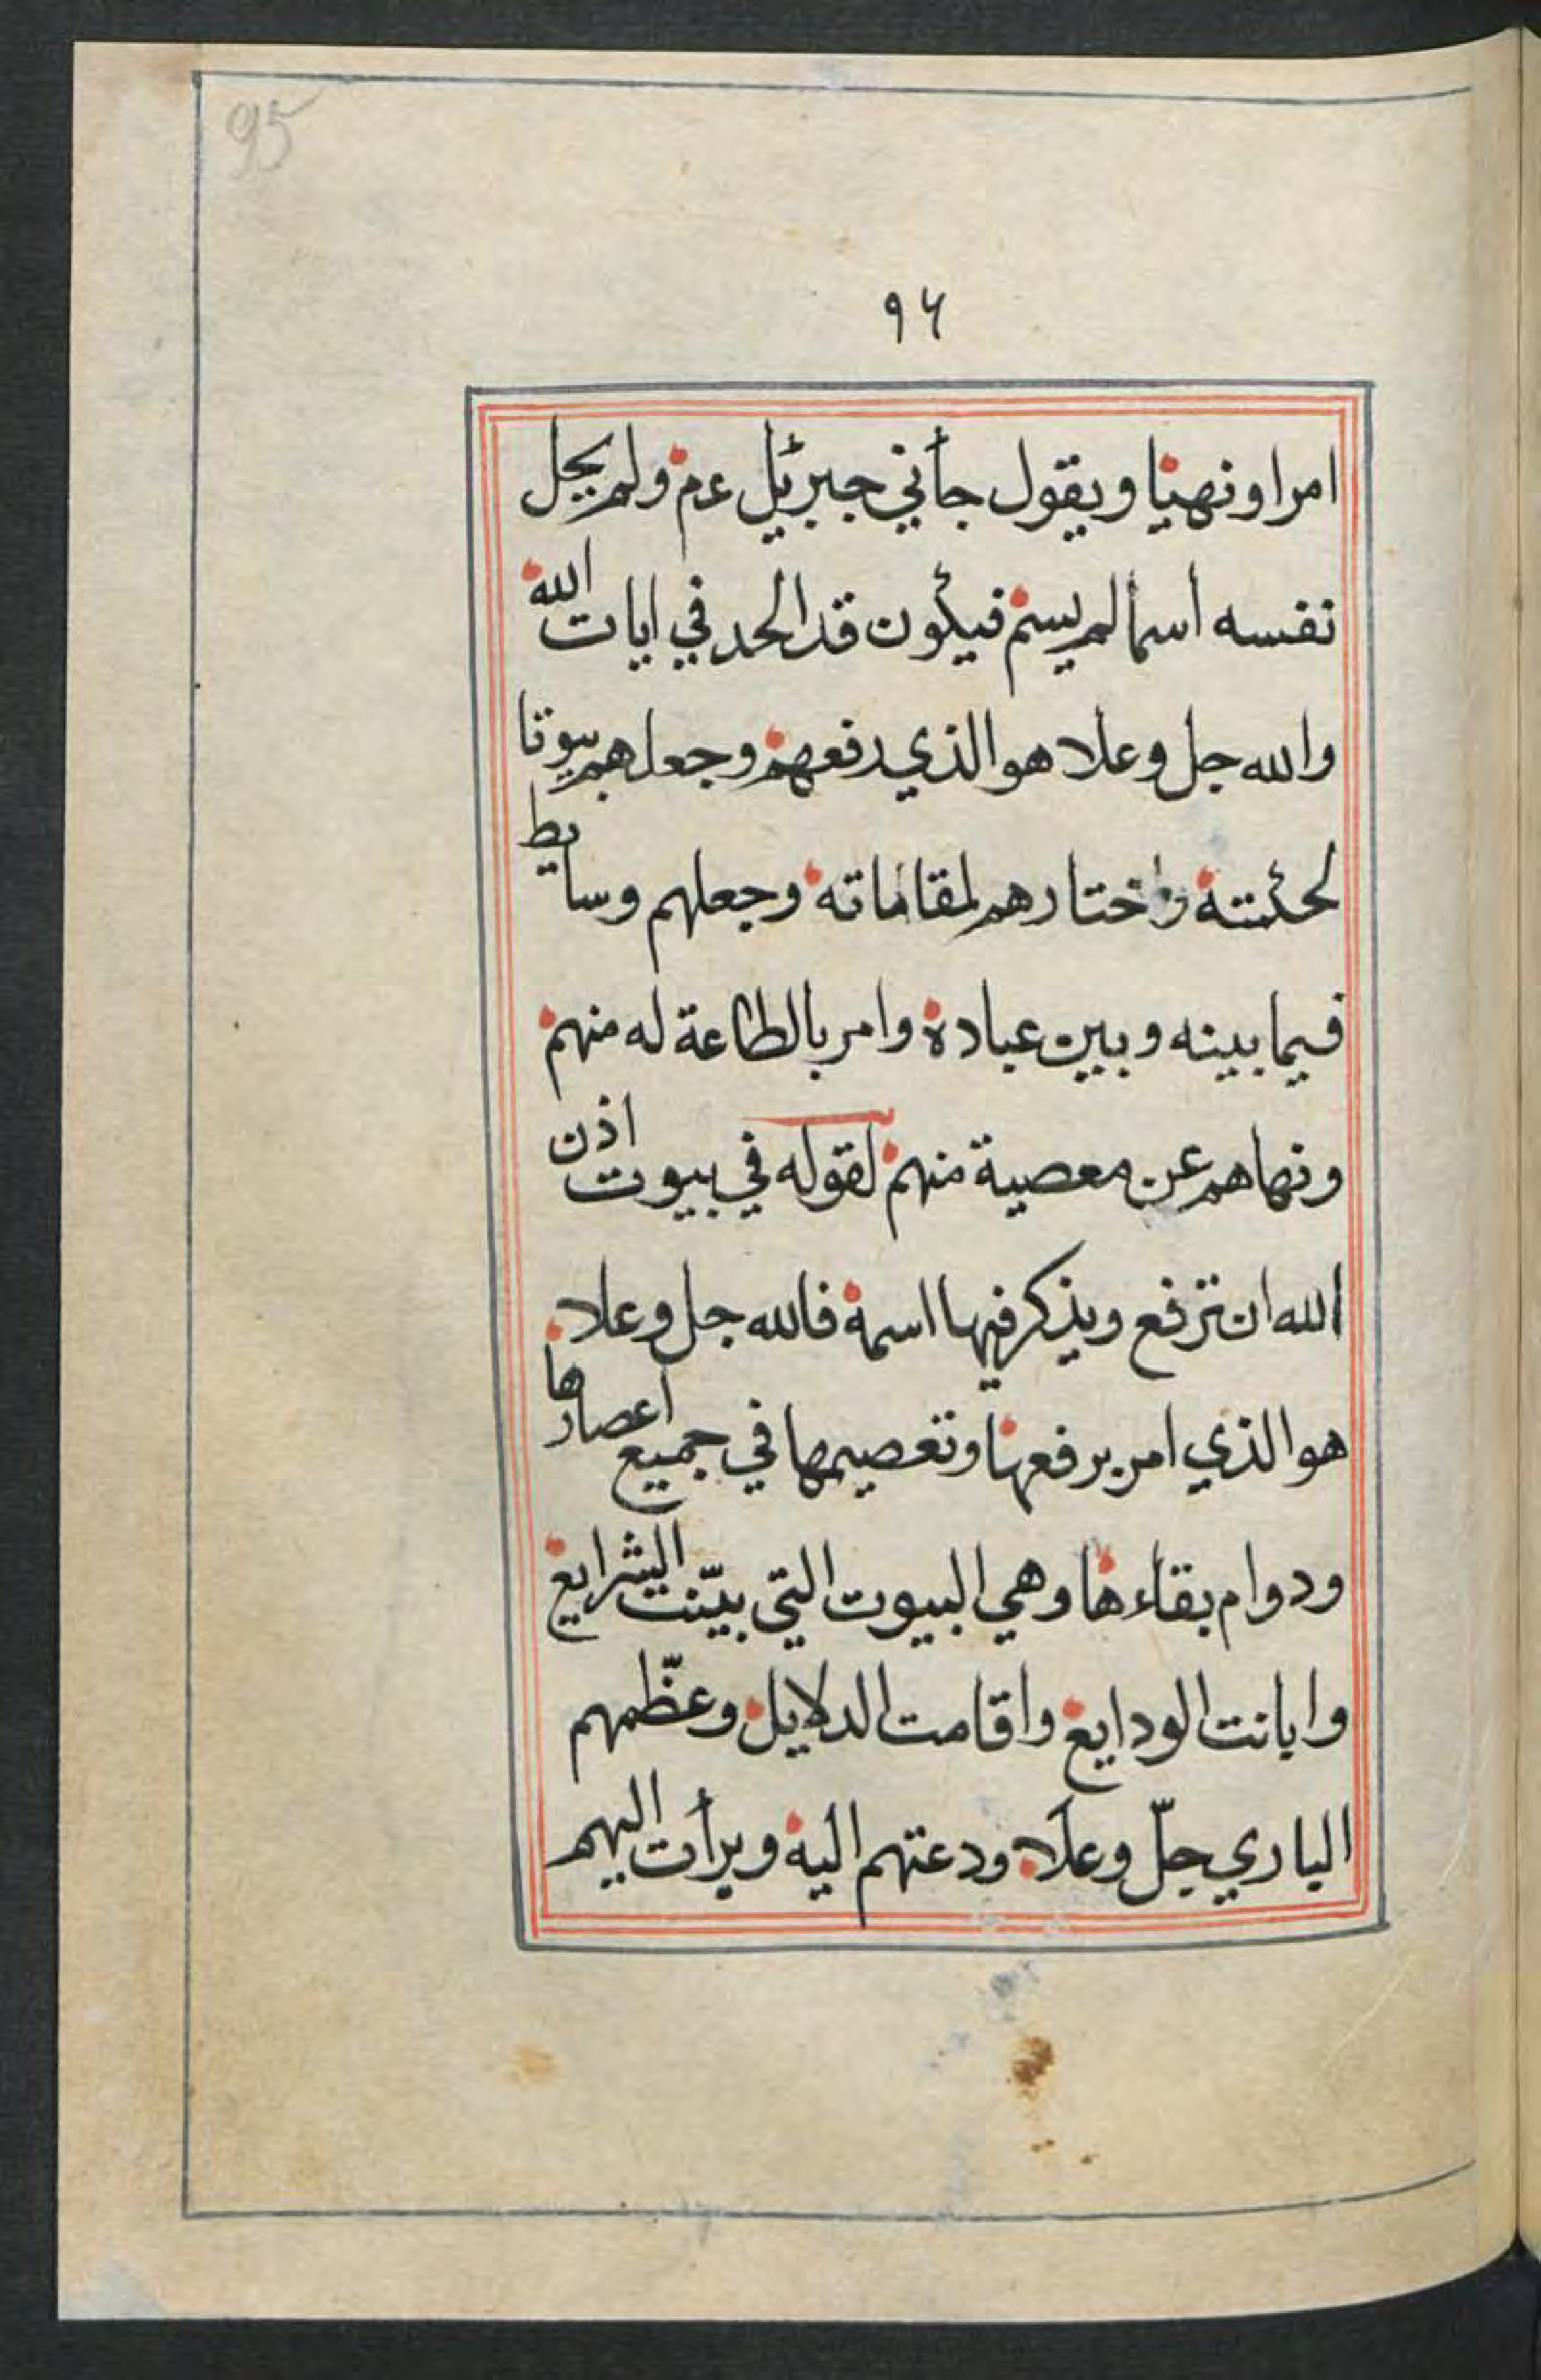 95
٩٦
امرا ونهيا ويقول جأني جبرئيل عم ولم يجل
نفسه أسما لم يسم فيكون قد الحد في ايات الله
والله جل وعلا هو الذي رفعهم وجعلهم بيوتا
لحكمته واختارهم لمقاماته وجعلهم وسايط
فيما بينه وبين عباده وامر بالطاعة له منهم
ونهاهم عن معصية منهم لقوله في بيوت اذن
الله ان ترفع ويذكر فيها اسمه فالله جل وعلا
هو الذي امر برفعها وتعصيمها في جميع أعصارها
ودوام بقاءها وهي البيوت التي بيّنت الشرايع
وابانت الودايع واقامت الدلايل وعظّمهم
الباري جلّ وعلا ودعتهم اليه وبرأت اليهم